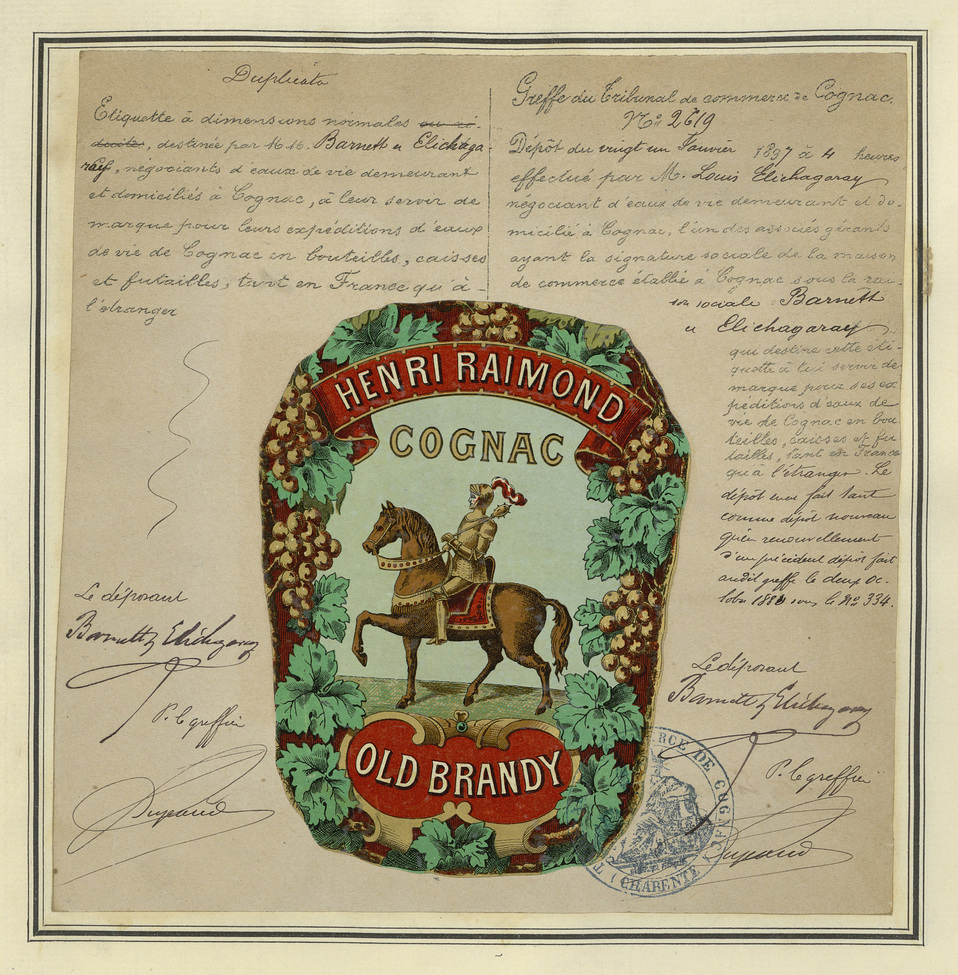 Duplicata
Etiquette à dimensions normales ou ré-
duites, destinée par M.M. Barnett et Elichaga-
ray, négociants d'eaux de vie demeurant
et domiciliés à Cognac, à leur servir de
marque pour leurs expéditions d'eaux
de vie de Cognac en bouteilles, caisses
et futailles, tant en France qu'à
l'étranger
Le déposant
Barnett & Elichagaray
P. le greffier
Greffe du Tribunal de commerce de Cognac.
No 2619
Dépôt du vingt un Janvier 1897 à 4 heures
effectué par M. Louis Elichagaray
négociant d'eaux de vie demeurant et do-
micilié à Cognac, l'un des associés gérants
ayant la signature sociale de la maison
de commerce établie à Cognac sous la rai-
son sociale Barnett
et Elichagaray
qui destine cette éti-
quette à leur servir de
marque pour ses ex
péditions d'eaux de
vie de Cognac en bou
teilles, caisses et fu
tailles, tant en France
qu'à l'étranger. Le
dépôt en a fait tant
comme dépôt nouveau
qu'en renouvellement
d'un précédent dépôt fait
audit greffe le deux oc-
tobre sous le No 334.
Le déposant
Barnett & Elichagaray
P. le greffier
HENRI RAIMOND
COGNAC
OLD BRANDY
RCE DE COGNAC
(CHARENTE)